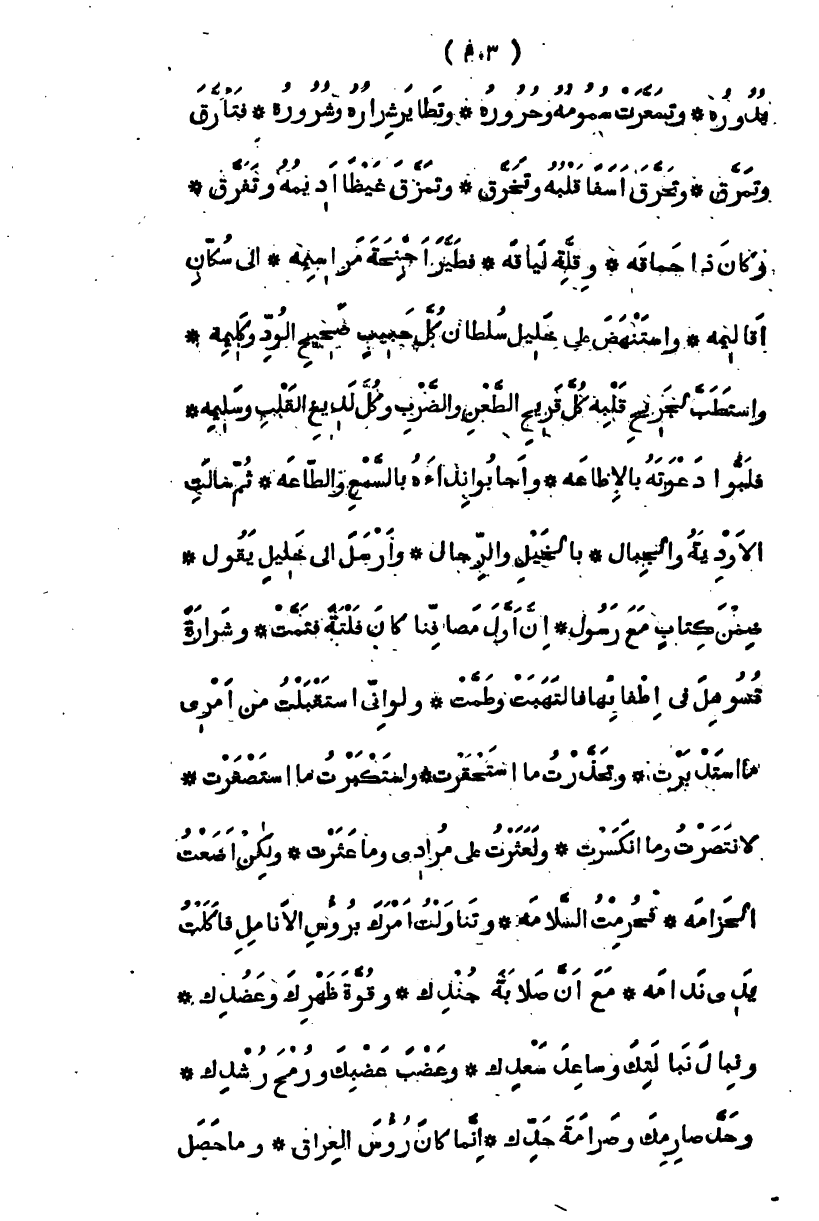 ( ٤٠٣ )
بُدُورُهُ * وَتَسَعَّرَتْ سَمُومُهُ وَحَرُورُهُ * وَتَطَايَرَ شِرَارُهُ وَشُرُورُهُ * فَتَأَرَّقَ
وَتَمَرَّقَ * وَتَحَرَّقَ أَسَفًا قَلْبُهُ وَتَخَرَّقَ * وَتَمَزَّقَ غَيْظًا أَدِيمُهُ وَتَفَرَّقَ *
وَكَانَ ذَا حَمَاقَه * وَقِلَّةِ لَيَاقَه * فَطَيَّرَ أَجْنِحَةَ مَرَاسِيمِه * الى سُكَّانِ
أَقَالِيمِه * وَاسْتَنْهَضَ على خَلِيل سُلْطَان كُلَّ حَبِيبٍ صَحِيحِ الوُدِّ وَكَلِيمِه *
وَاسْتَطَبَّ لِجَرِيحِ قَلْبِه كُلَّ قَرِيحِ الطَّعْنِ وَالضَّرْبِ وَكُلَّ لَدِيغِ القَلْبِ وَسَلِيمِه *
فَلَبُّوا دَعْوَتَهُ بِالإِطَاعَه * وَأَجَابُوا نِدَاءَهُ بِالسَّمْعِ وَالطَّاعَه * ثُمَّ سَالَتِ
الأَوْدِيَةُ وَالجِبَال * بِالخَيْلِ وَالرِّجَال * وَأَرْسَلَ الى خَلِيلٍ يَقُول *
ضِمْنَ كِتَابٍ مَعَ رَسُول * إِنَّ أَوَّلَ مَصَافِّنَا كَانَ فَلْتَةً فَتَمَّتْ * وَشَرَارَةً
تُسُوهِلَ فى إِطْفَائِهَا فَالْتَهَبَتْ وَطَمَّتْ * وَلَوْ انِّى اسْتَقْبَلْتُ مِن أَمْرِى
مَا اسْتَدْبَرْت * وَتَحَذَّرْتُ مَا اسْتَحْقَرْت * وَاسْتَكْبَرْتُ مَا اسْتَصْغَرْت *
لَانْتَصَرْتُ وَمَا انْكَسَرْت * وَلَعَثَرْتُ على مُرَادِى وَمَا عَثَرْت * وَلٰكِنْ أَضَعْتُ
الحَزَامَه * فَحُرِمْتُ السَّلَامَه * وَتَنَاوَلْتُ أَمْرَكَ بِرُؤُسِ الأَنَامِلِ فَأَكَلْتُ
يَدِى نَدَامَه * مَعَ أَنَّ صَلَابَةَ جُنْدِك * وَقُوَّةَ ظَهْرِكَ وَعَضُدِك *
وَنِبَالَ نَبَالَتِكَ وَسَاعِدَ سَعْدِك * وَعَضْبَ غَضَبِكَ وَرُمْحَ رُشْدِك *
وَحَدَّ صَارِمِكَ وَصَرَامَةَ حَدِّك * إِنَّمَا كَانَ رُؤُسَ العِرَاقِ * وَمَا حَصَلَ